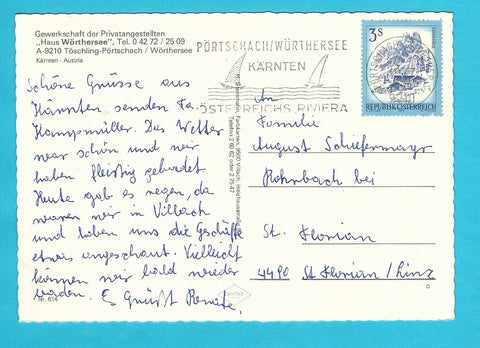 Gewerkschaft der Privatangestellten
„Haus Wörthersee", Tel. 0 42 72 / 25 09
A-9210 Töschling-Pörtschach / Wörthersee
Kärnten - Austria
PÖRTSCHACH/WÖRTHERSEE
KÄRNTEN
ÖSTERREICHS RIVIERA
3 S
REPUBLIK ÖSTERREICH
Schöne Grüsse aus
Kärnten senden Fa.
Kampsmüller. Das Wetter
war schön und wir
haben fleißig gebadet
Heute gab es regen, da
waren wir in Villach
und haben uns die Geschäfte
etwas angeschaut. Vielleicht
können wir bald wieder
baden. Es Grüßt Renate.
An
Familie
August Schiefermayr
Rohrbach bei
St. Florian
4490 St Florian/Linz
Nr. 614